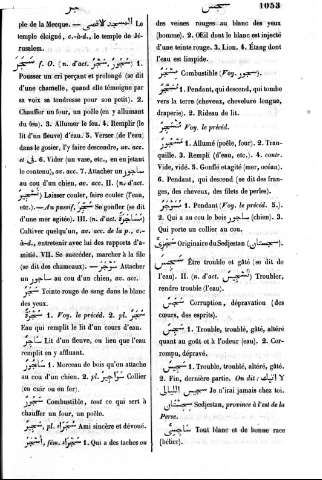 سجر
سجس
1053
ple de la Mecque. — المسجد الاقصى Le
temple éloigné, c.-à-d., le temple de Jé-
rusalem.
سَجَرَ f. O. (n. d'act. سَجْر, سُجُور) 1.
Pousser un cri perçant et prolongé (se dit
d'une chamelle, quand elle témoigne par
sa voix sa tendresse pour son petit). 2.
Chauffer un four, un poêle (en y allumant
du feu). 3. Allumer le feu. 4. Remplir (le
lit d'un fleuve) d'eau. 5. Verser (de l'eau)
dans le gosier, l'y faire descendre, av. acc.
et في. 6. Vider (un vase, etc., en en jetant
le contenu), av. acc. 7. Attacher un ساجور
au cou d'un chien, av. acc. II. (n. d'act.
تسجير) Laisser couler, faire couler (l'eau,
etc.). — Au passif, سُجِّرَ Se gonfler (se dit
d'une mer agitée). III. (n. d'act. مساجرة)
Cultiver quelqu'un, av. acc. de la p., c.-
à-d., entretenir avec lui des rapports d'a-
mitié. VII. Se succéder, marcher à la file
(se dit des chameaux). — سوجر Attacher
un ساجور au cou d'un chien, av. acc.
سَجَر Teinte rouge de sang dans le blanc
des yeux.
سُجْرَة 1. Voy. le précéd. 2. pl. سُجَر
Eau qui remplit le lit d'un cours d'eau.
ساجر Lit d'un fleuve, ou lieu que l'eau
remplit en y affluant.
ساجور 1. Morceau de bois qu'on attache
au cou d'un chien. 2. pl. سواجير Collier
(en cuir ou en fer).
سَجُور Combustible, tout ce qui sert à
chauffer un four, un poêle.
سَجِير pl. سُجَراء Ami sincère et dévoué.
أَسْجَر, fém. سَجْراء 1. Qui a des taches ou
des veines rouges au blanc des yeux
(homme). 2. Œil dont le blanc est injecté
d'une teinte rouge. 3. Lion. 4. Étang dont
l'eau est limpide.
Combustible (Voy. سجور).
1. Pendant, qui descend, qui tombe
vers la terre (cheveux, chevelure longue,
draperie). 2. Rideau de lit.
Voy. le précéd.
مسجور 1. Allumé (poêle, four). 2. Tran-
quille. 3. Rempli (d'eau, etc.). 4. contr.
Vide, vidé. 5. Gonflé et agité (mer, océan).
6. Pendant, qui descend (se dit des fran-
ges, des cheveux, des filets de perles).
1. Pendant (Voy. le précéd. 5.).
2. Qui a au cou le bois ساجور (chien). 3.
Qui porte un collier au cou.
سجزي Originaire du Sedjestan (سجستان).
سَجِسَ Être trouble et gâté (se dit de
l'eau). II. (n. d'act. تسجيس) Troubler,
rendre trouble (l'eau).
سجس Corruption, dépravation (des
cœurs, des esprits).
سجس 1. Trouble, troublé, gâté, altéré
quant au goût et à l'odeur (eau). 2. Cor-
rompu, dépravé.
سجيس 1. Trouble, troublé, gâté, altéré.
2. Fin, dernière partie. On dit: لا آتيك
سجيس الليالي Je n'irai jamais chez toi.
سجستان Sedjestan, province à l'est de la
Perse.
ساجسي Tout blanc et de bonne race
(bélier).